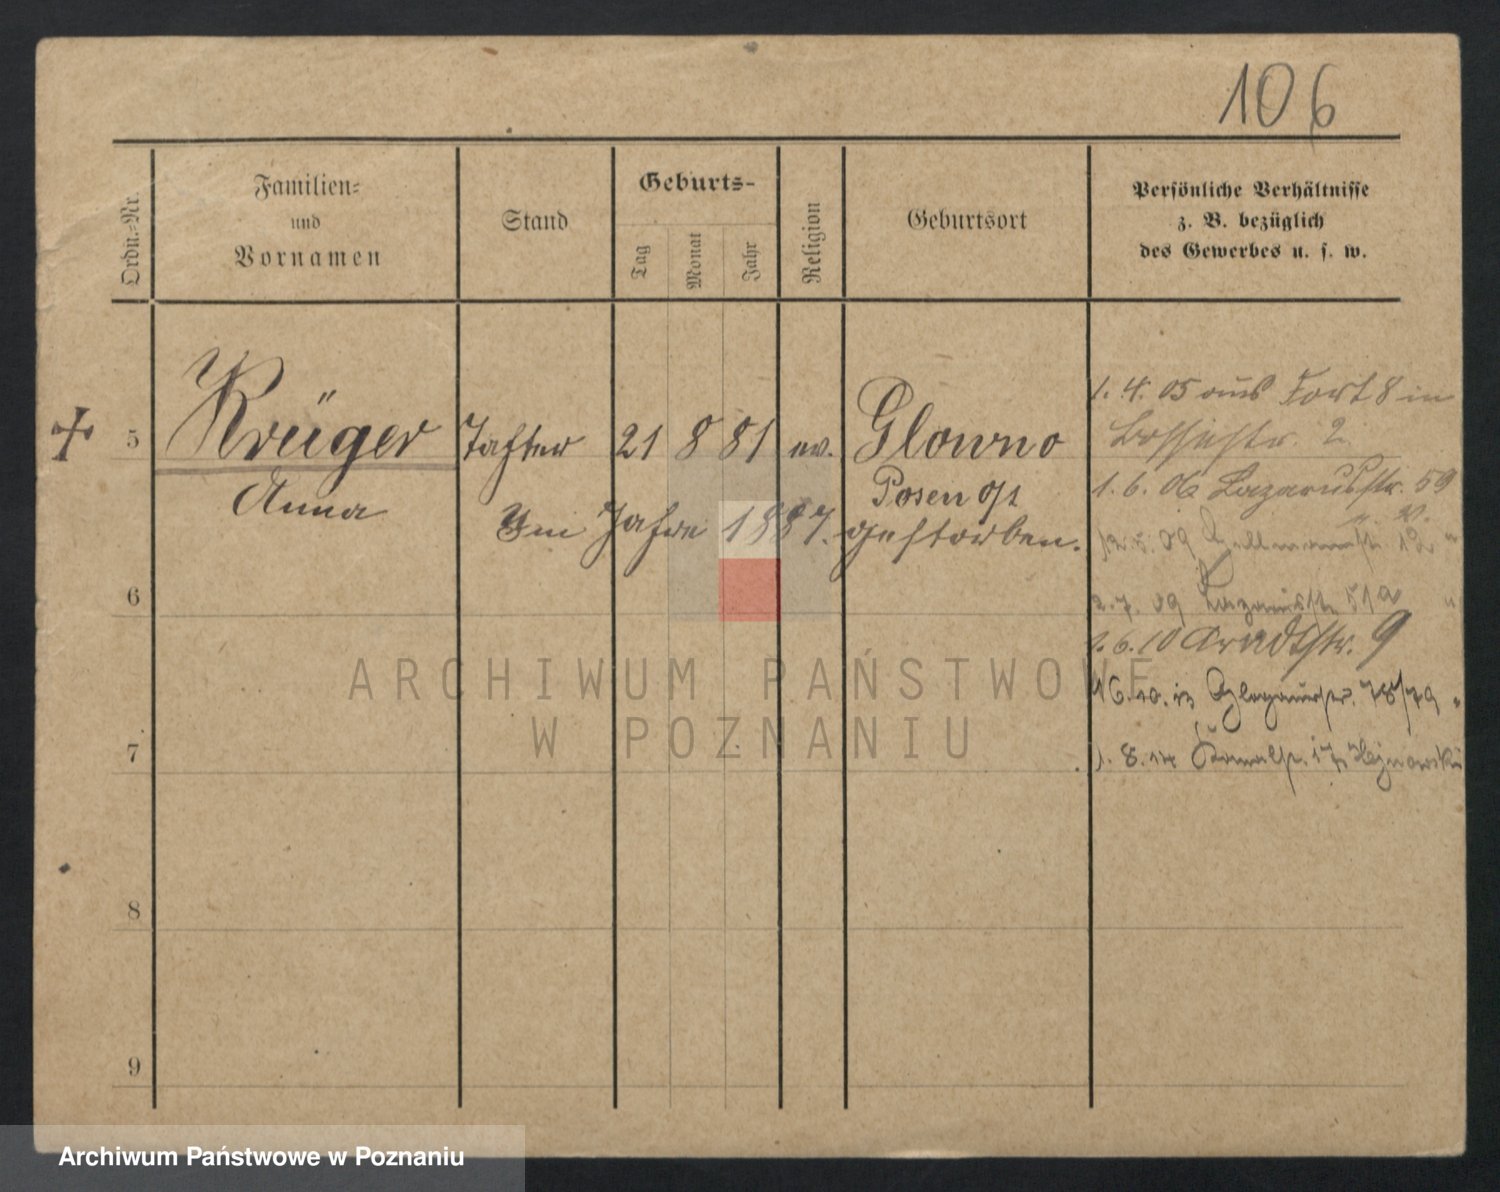 106
Ordn.-Nr.
Familien-
und
Vornamen
Stand
Geburts-
Tag
Monat
Jahr
Religion
Geburtsort
Persönliche Verhältnisse
z. B. bezüglich
des Gewerbes u. s. w.
5 Krüger Tochter 21 8 81 ev. Glowno
Anna Posen Ost
Im Jahre 1887. gestorben.
1. 4. 05 aus Fort 8 in
2.
1. 6. 06 Lazarusstr. 59
09
2. 7. 09 Lazarusstr. 51a
1. 6. 10 Arndtstr. 9
16. 10. Glogauerstr. 78/79 "
1. 8. Kanalstr. 17
6
7
8
9
ARCHIWUM PAŃSTWOWE
W POZNANIU
Archiwum Państwowe w Poznaniu